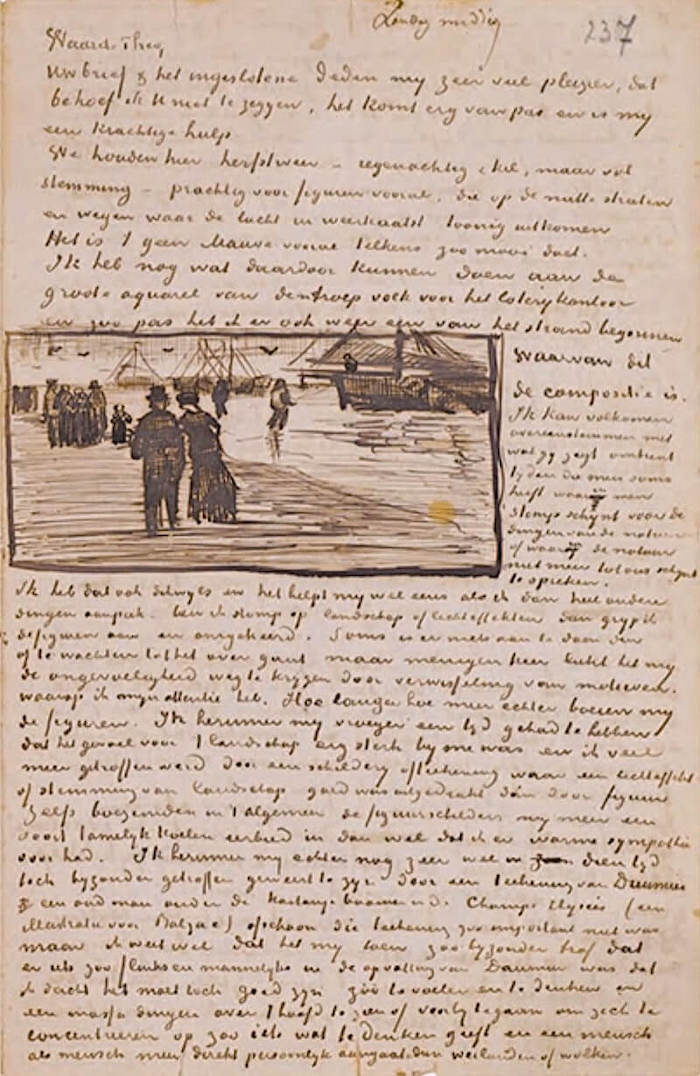 Zondag middag
237
Waarde Theo,
Uw brief & het ingeslotene deden my zeer veel pleizier, dat
behoef ik U niet te zeggen, het komt erg van pas en is my
een krachtige hulp.
We houden hier herfstweer – regenachtig & kil, maar vol
stemming – prachtig voor figuren vooral, die op de natte straten
en wegen waar de lucht in weerkaatst toonig uitkomen
Het is 't geen Mauve vooral telkens zoo mooi doet.
Ik heb nog wat daardoor kunnen doen aan de
groote aquarel van den troep volk voor het loterykantoor
en zoo pas heb ik er ook weer een van het strand begonnen
Waarvan dit
de compositie is.
Ik kan volkomen
overeenstemmen met
wat gy zegt omtrent
tyden die men soms
heeft waarin men
stomp schynt voor de
dingen van de natuur
of waarin de natuur
niet meer tot ons schynt
te spreken.
Ik heb dat ook dikwyls en het helpt my wel eens als ik dan heel andere
dingen aanpak. Ben ik stomp op landschap of lichteffekten dan gryp ik
de figuren aan en omgekeerd. Soms is er niets aan te doen dan
of te wachten tot het over gaat maar menigen keer lukt het my
de ongevoeligheid weg te krygen door verwisseling van motieven.
waarop ik myn attentie heb. Hoe langer hoe meer echter boeien my
de figuren. Ik herinner my vroeger een tyd gehad te hebben
dat het gevoel voor 't landschap erg sterk by me was en ik veel
meer getroffen werd door een schildery of teekening waar een lichteffekt
of stemming van landschap goed was uitgedrukt dan door figuur
Zelfs boezemden in 't algemeen de figuurschilders my meer een
soort tamelyk koelen eerbied in dan wel dat ik er warme sympathie
voor had. Ik herinner my echter nog zeer wel in dien tyd
toch byzonder getroffen geweest te zyn door een teekening van Daumier
een oud man onder de Kastanjeboomen in d. Champs Elysées (een
illustratie voor Balzac) ofschoon die teekening zoo important niet was
maar ik weet wel dat het my toen zoo byzonder trof dat
er iets zoo flinks en mannelyks in de opvatting van Daumier was dat
ik dacht het moet toch goed zyn zóó te voelen en te denken en
een massa dingen over 't hoofd te zien of voorby te gaan om zich te
concentreeren op zoo iets wat te denken geeft en een mensch
als mensch meer direkt persoonlyk aangaat dan weilanden of wolken.